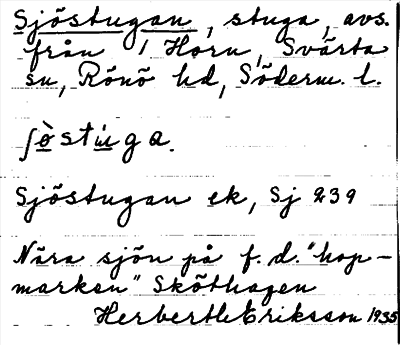 Sjöstugan, stuga, avs.
från Horn, Svärta
sn, Rönö hd, Söderm. l.
ʃö̀stuga.
Sjöstugan ek, Sj 239
Nära sjön på f. d. "hop-
marken" Sköthagen
Herberth Eriksson 1935